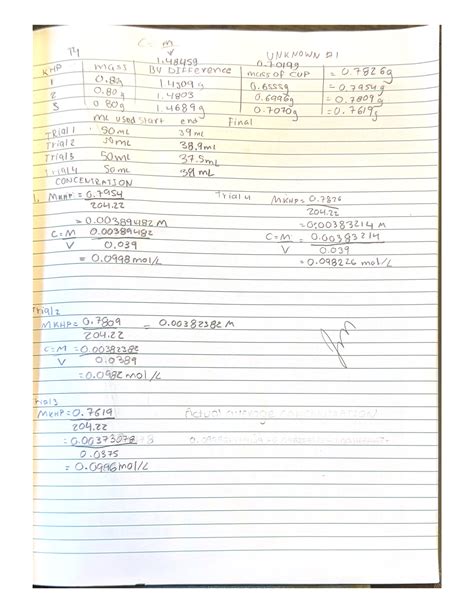 C = m
T4
UNKNOWN 21
1.4845g 0.7019g = 0.7826g
KHP MASS BY Difference mass of cup
1 0.8g 1.4509g 0.6555g = 0.7954g
2 0.80g 1.4803 0.6996g = 0.7809g
3 0.80g 1.4689g 0.7070g = 0.7619g
mL used start end Final
TRial 1 50mL 39mL
Trial 2 50mL 38.9ml
Trial 3 50mL 37.5mL
Trial 4 50mL 39mL
CONCENTRATION
1. MKHP = 0.7954 Trial 4 MKHP = 0.7826
204.22 204.22
= 0.00389482 M =0.00383214 M
C=M 0.00389482 C=M = 0.00383214
V 0.039 V 0.039
= 0.0998 mol/L = 0.098226 mol/L
Trial 2
MKHP = 0.7809 = 0.00382382 M
204.22
C=M = 0.00382382
V 0.0389
= 0.0982 mol/L
Trial 3
MKHP = 0.7619
204.22
= 0.00373078
0.0375
= 0.0996 mol/L